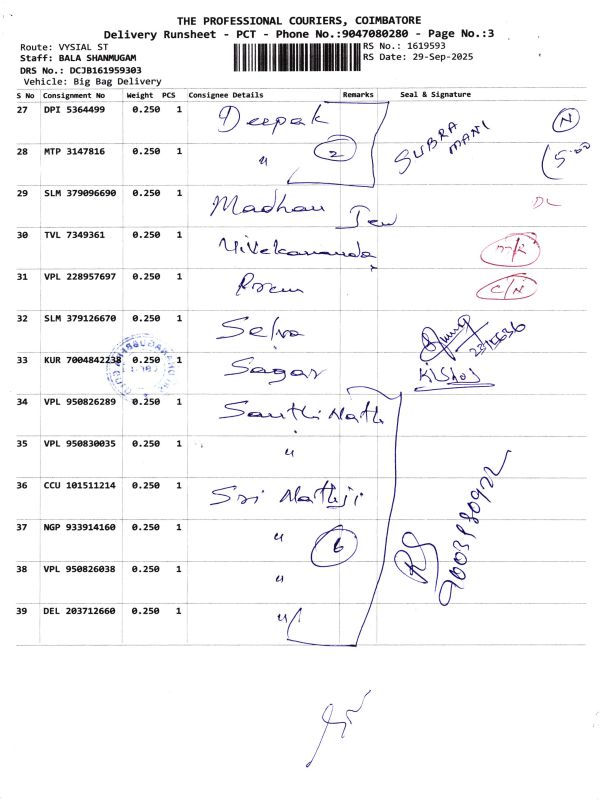 THE PROFESSIONAL COURIERS, COIMBATORE
Delivery Runsheet - PCT - Phone No.:9047080280 - Page No.:3
Route: VYSIAL ST
RS No.: 1619593
Staff: BALA SHANMUGAM
RS Date: 29-Sep-2025
DRS No.: DCJB161959303
Vehicle: Big Bag Delivery
S No Consignment No Weight PCS Consignee Details Remarks Seal & Signature
27 DPI 5364499 0.250 1 Deepak SUBRA MANI N
28 MTP 3147816 0.250 1 " 2 5:00
29 SLM 379096690 0.250 1 Madhan DL
30 TVL 7349361 0.250 1 Vivekananda
31 VPL 228957697 0.250 1 C/N
32 SLM 379126670 0.250 1 Selva
33 KUR 7004842238 0.250 1 Sagar
34 VPL 950826289 0.250 1 Santhi Nath
35 VPL 950830035 0.250 1 "
36 CCU 101511214 0.250 1 Sri Nathji
37 NGP 933914160 0.250 1 " 6
38 VPL 950826038 0.250 1 "
39 DEL 203712660 0.250 1 "